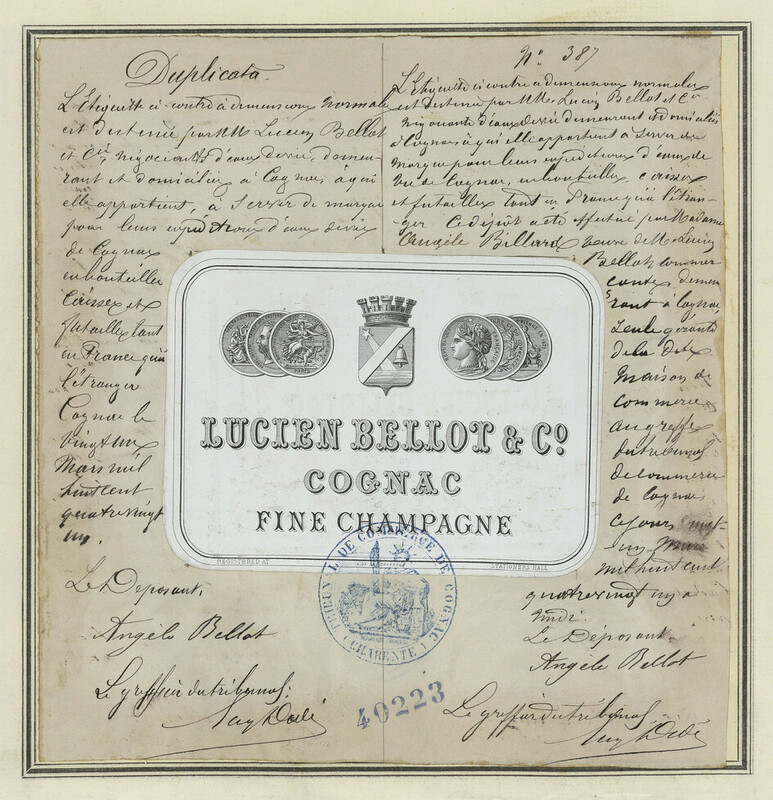 Duplicata.
L'Etiquette ci-contre à dimensions normales
est destinée par MM Lucien Bellot
et Cie, négociants d'eaux de vie, demeu-
rant et domiciliés à Cognac, à qui
elle appartient, à servir de marque
pour leurs expéditions d'eaux de vie
de Cognac
en bouteilles
Caisses et
futailles tant
en France qu'à
l'étranger
Cognac le
vingt un
Mars mil
huit cent
quatre vingt
un.
Le Déposant,
Angèle Bellot
Le greffier du tribunal:
No 387
L'Etiquette ci contre à dimensions normales
est destinée par MM. Lucien Bellot et Cie
négociants d'eaux de vie demeurant et domiciliés
à Cognac, à qui elle appartient à servir de
marque pour leurs expéditions d'eaux de
vie de Cognac, en bouteilles, caisses
et futailles tant en France qu'à l'étran-
ger Ce dépôt a été effectué par Madame
Angèle Billard veuve de M. Lucien
Bellot, commer
çante, demeu
rant à Cognac,
Seule gérante
de la dite
Maison de
commerce
au greffe
du tribunal
de commerce
de Cognac
ce jour vingt
un Mars
mil huit cent
quatre vingt un à
midi.
Le Déposant.
Angèle Bellot
Le greffier du tribunal
PARIS
LUCIEN BELLOT & Co
COGNAC
FINE CHAMPAGNE
REGISTERED AT
STATIONERS' HALL
TRIBUNAL DE COMMERCE DE COGNAC
(CHARENTE)
40223